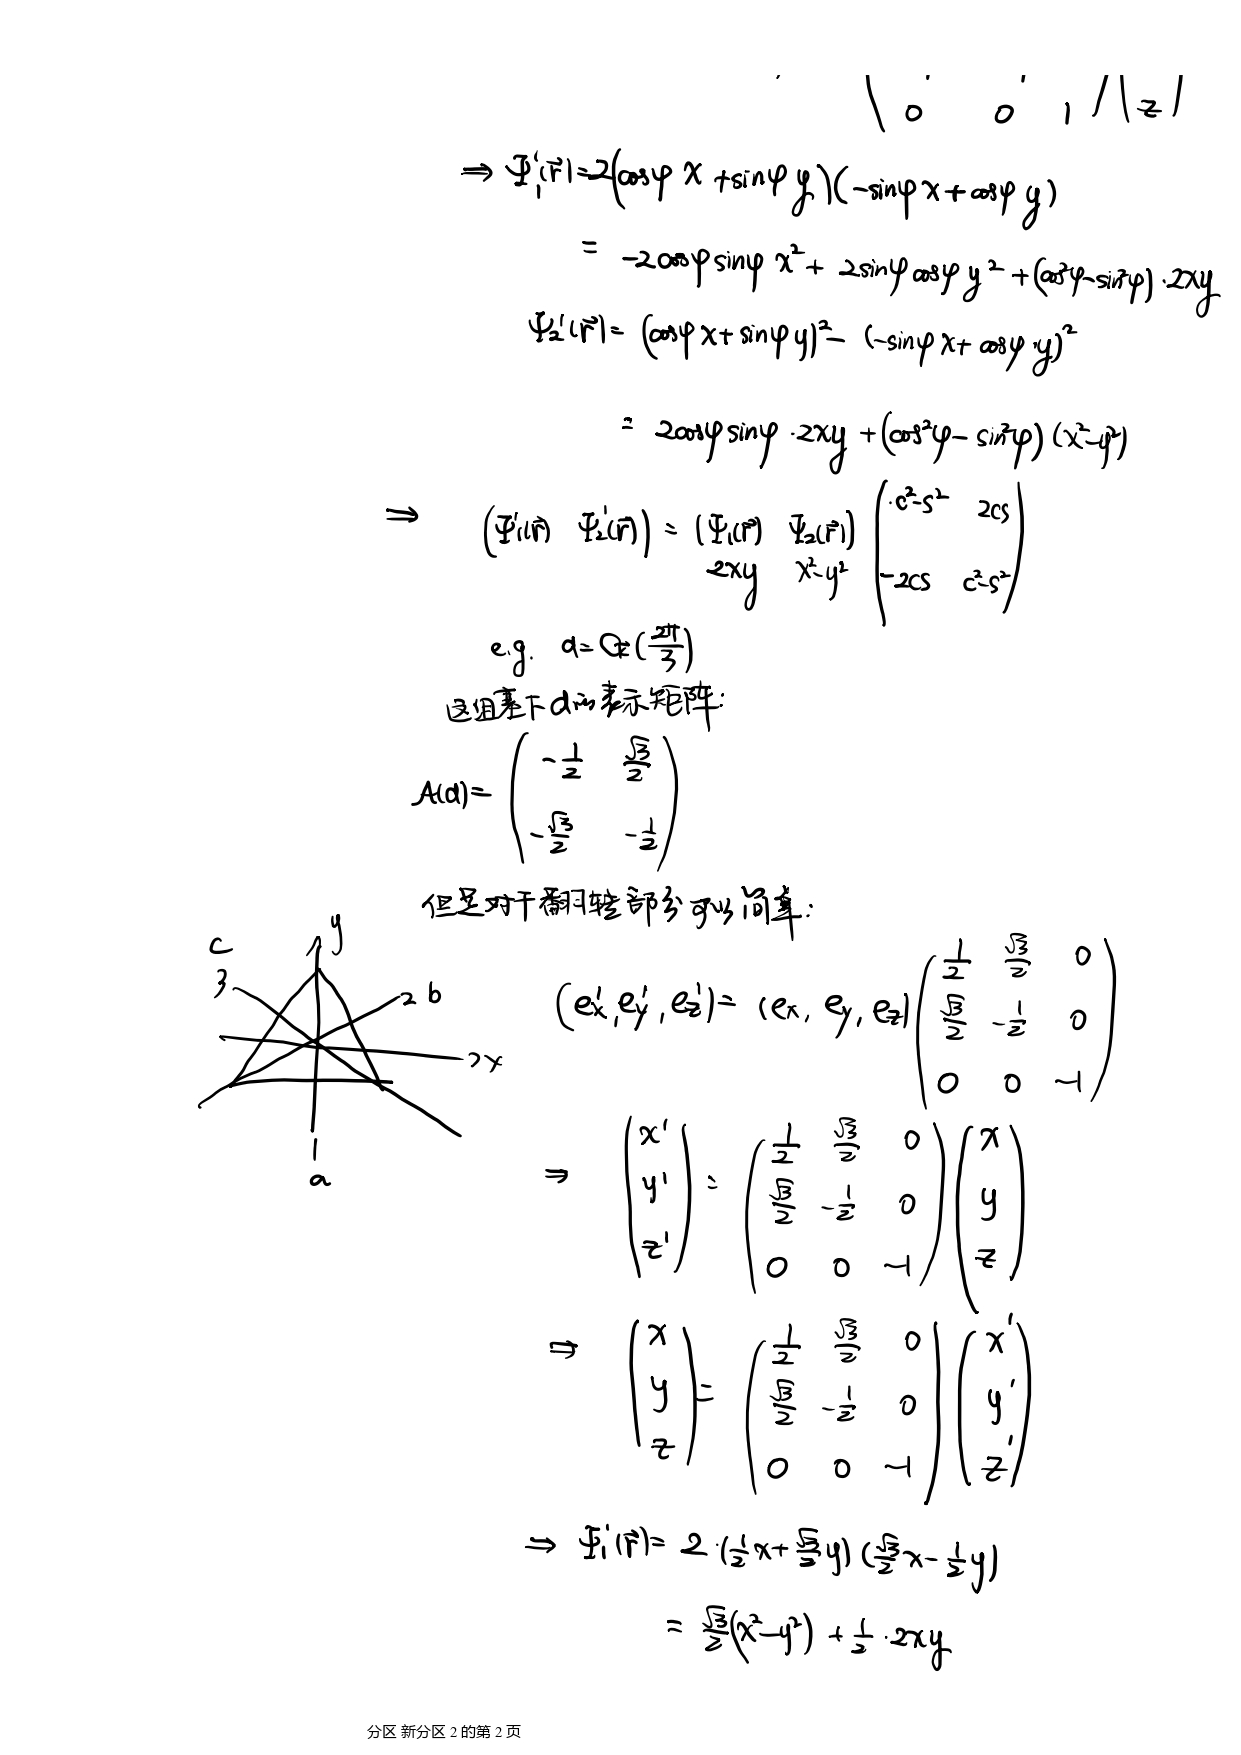 0 0 1 z
⇒ Ψ₁'(r⃗)=2(cosφ x +sinφ y)(-sinφ x + cosφ y)
= -2cosφ sinφ x² + 2sinφ cosφ y² + (cos²φ-sin²φ)·2xy
Ψ₂'(r⃗)= (cosφ x + sinφ y)² - (-sinφ x + cosφ y)²
= 2cosφ sinφ ·2xy + (cos²φ - sin²φ) (x²-y²)
⇒ (Ψ₁'(r⃗) Ψ₂'(r⃗)) = (Ψ₁(r⃗) Ψ₂(r⃗)) ( c²-s² 2cs
2xy x²-y² -2cs c²-s² )
e.g. d= C_z(2π/3)
这组基下d的表示矩阵:
A(d)= ( -1/2 √3/2
-√3/2 -1/2 )
但是对于翻转部分可以简单:
c y
3 2 b
x
1
a
(ex', ey', ez') = (ex, ey, ez) ( 1/2 √3/2 0
√3/2 -1/2 0
0 0 -1 )
⇒ ( x' y' z' ) = ( 1/2 √3/2 0
√3/2 -1/2 0
0 0 -1 ) ( x y z )
⇒ ( x y z ) = ( 1/2 √3/2 0
√3/2 -1/2 0
0 0 -1 ) ( x' y' z' )
⇒ Ψ₁'(r⃗)= 2·(1/2 x + √3/2 y) (√3/2 x - 1/2 y)
= √3/2 (x²-y²) + 1/2 ·2xy
分区 新分区 2 的第 2 页